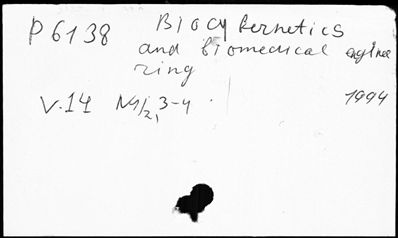 P 6138 Biocybernetics
and biomedical enginee
ring
V.14 N1/2, 3-4 1994